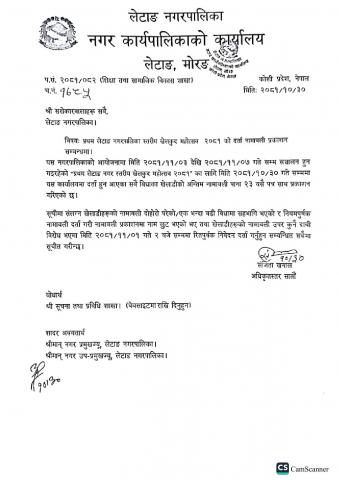 लेटाङ नगरपालिका
नगर कार्यपालिकाको कार्यालय
लेटाङ, मोरङ
प.सं. २०८१/०८२ (शिक्षा तथा सामाजिक विकास शाखा)
कोशी प्रदेश, नेपाल
च.नं. १६८५
मिति: २०८१/१०/३०
श्री सरोकारवालाहरू सबै,
लेटाङ नगरपालिका।
विषय: प्रथम लेटाङ नगरपालिका स्तरीय खेलकुद महोत्सव २०८१ को दर्ता नामावली प्रकाशन
सम्बन्धमा।
यस नगरपालिकाको आयोजनामा मिति २०८१/११/०३ देखि २०८१/११/०७ गते सम्म सञ्चालन हुन
गइरहेको "प्रथम लेटाङ नगर स्तरीय खेलकुद महोत्सव २०८१" का लागि मिति २०८१/१०/३० गते सम्ममा
यस कार्यालयमा दर्ता हुन आएका सबै विधामा खेलाडीको अन्तिम नामावली पाना २३ यसै पत्र साथ प्रकाशन
गरिएको छ।
सूचीमा संलग्न खेलाडीहरुको नामावली दोहोरो परेको/एक भन्दा बढी विधामा सहभागि भएको र नियमपुर्वक
नामावली दर्ता गरी नामावली प्रकाशनमा नाम छुट भएको भए तथा खेलाडीहरुको नामावली उपर कुनै दावी
विरोध भएमा मिति २०८१/११/०१ गते २ बजे सम्ममा रितपुर्वक निवेदन दर्ता गर्नुहुन सम्बन्धित सबैमा
सूचीत गरीन्छ।
१०/३०
सजिता खनाल
अधिकृतस्तर सातौं
बोधार्थ
श्री सूचना तथा प्रविधि शाखा। (वेबसाइटमा राखि दिनुहुन)
सादर अवगतार्थ
श्रीमान् नगर प्रमुखज्यू, लेटाङ नगरपालिका।
श्रीमान् नगर उप-प्रमुखज्यू, लेटाङ नगरपालिका।
१०/३०
CS CamScanner